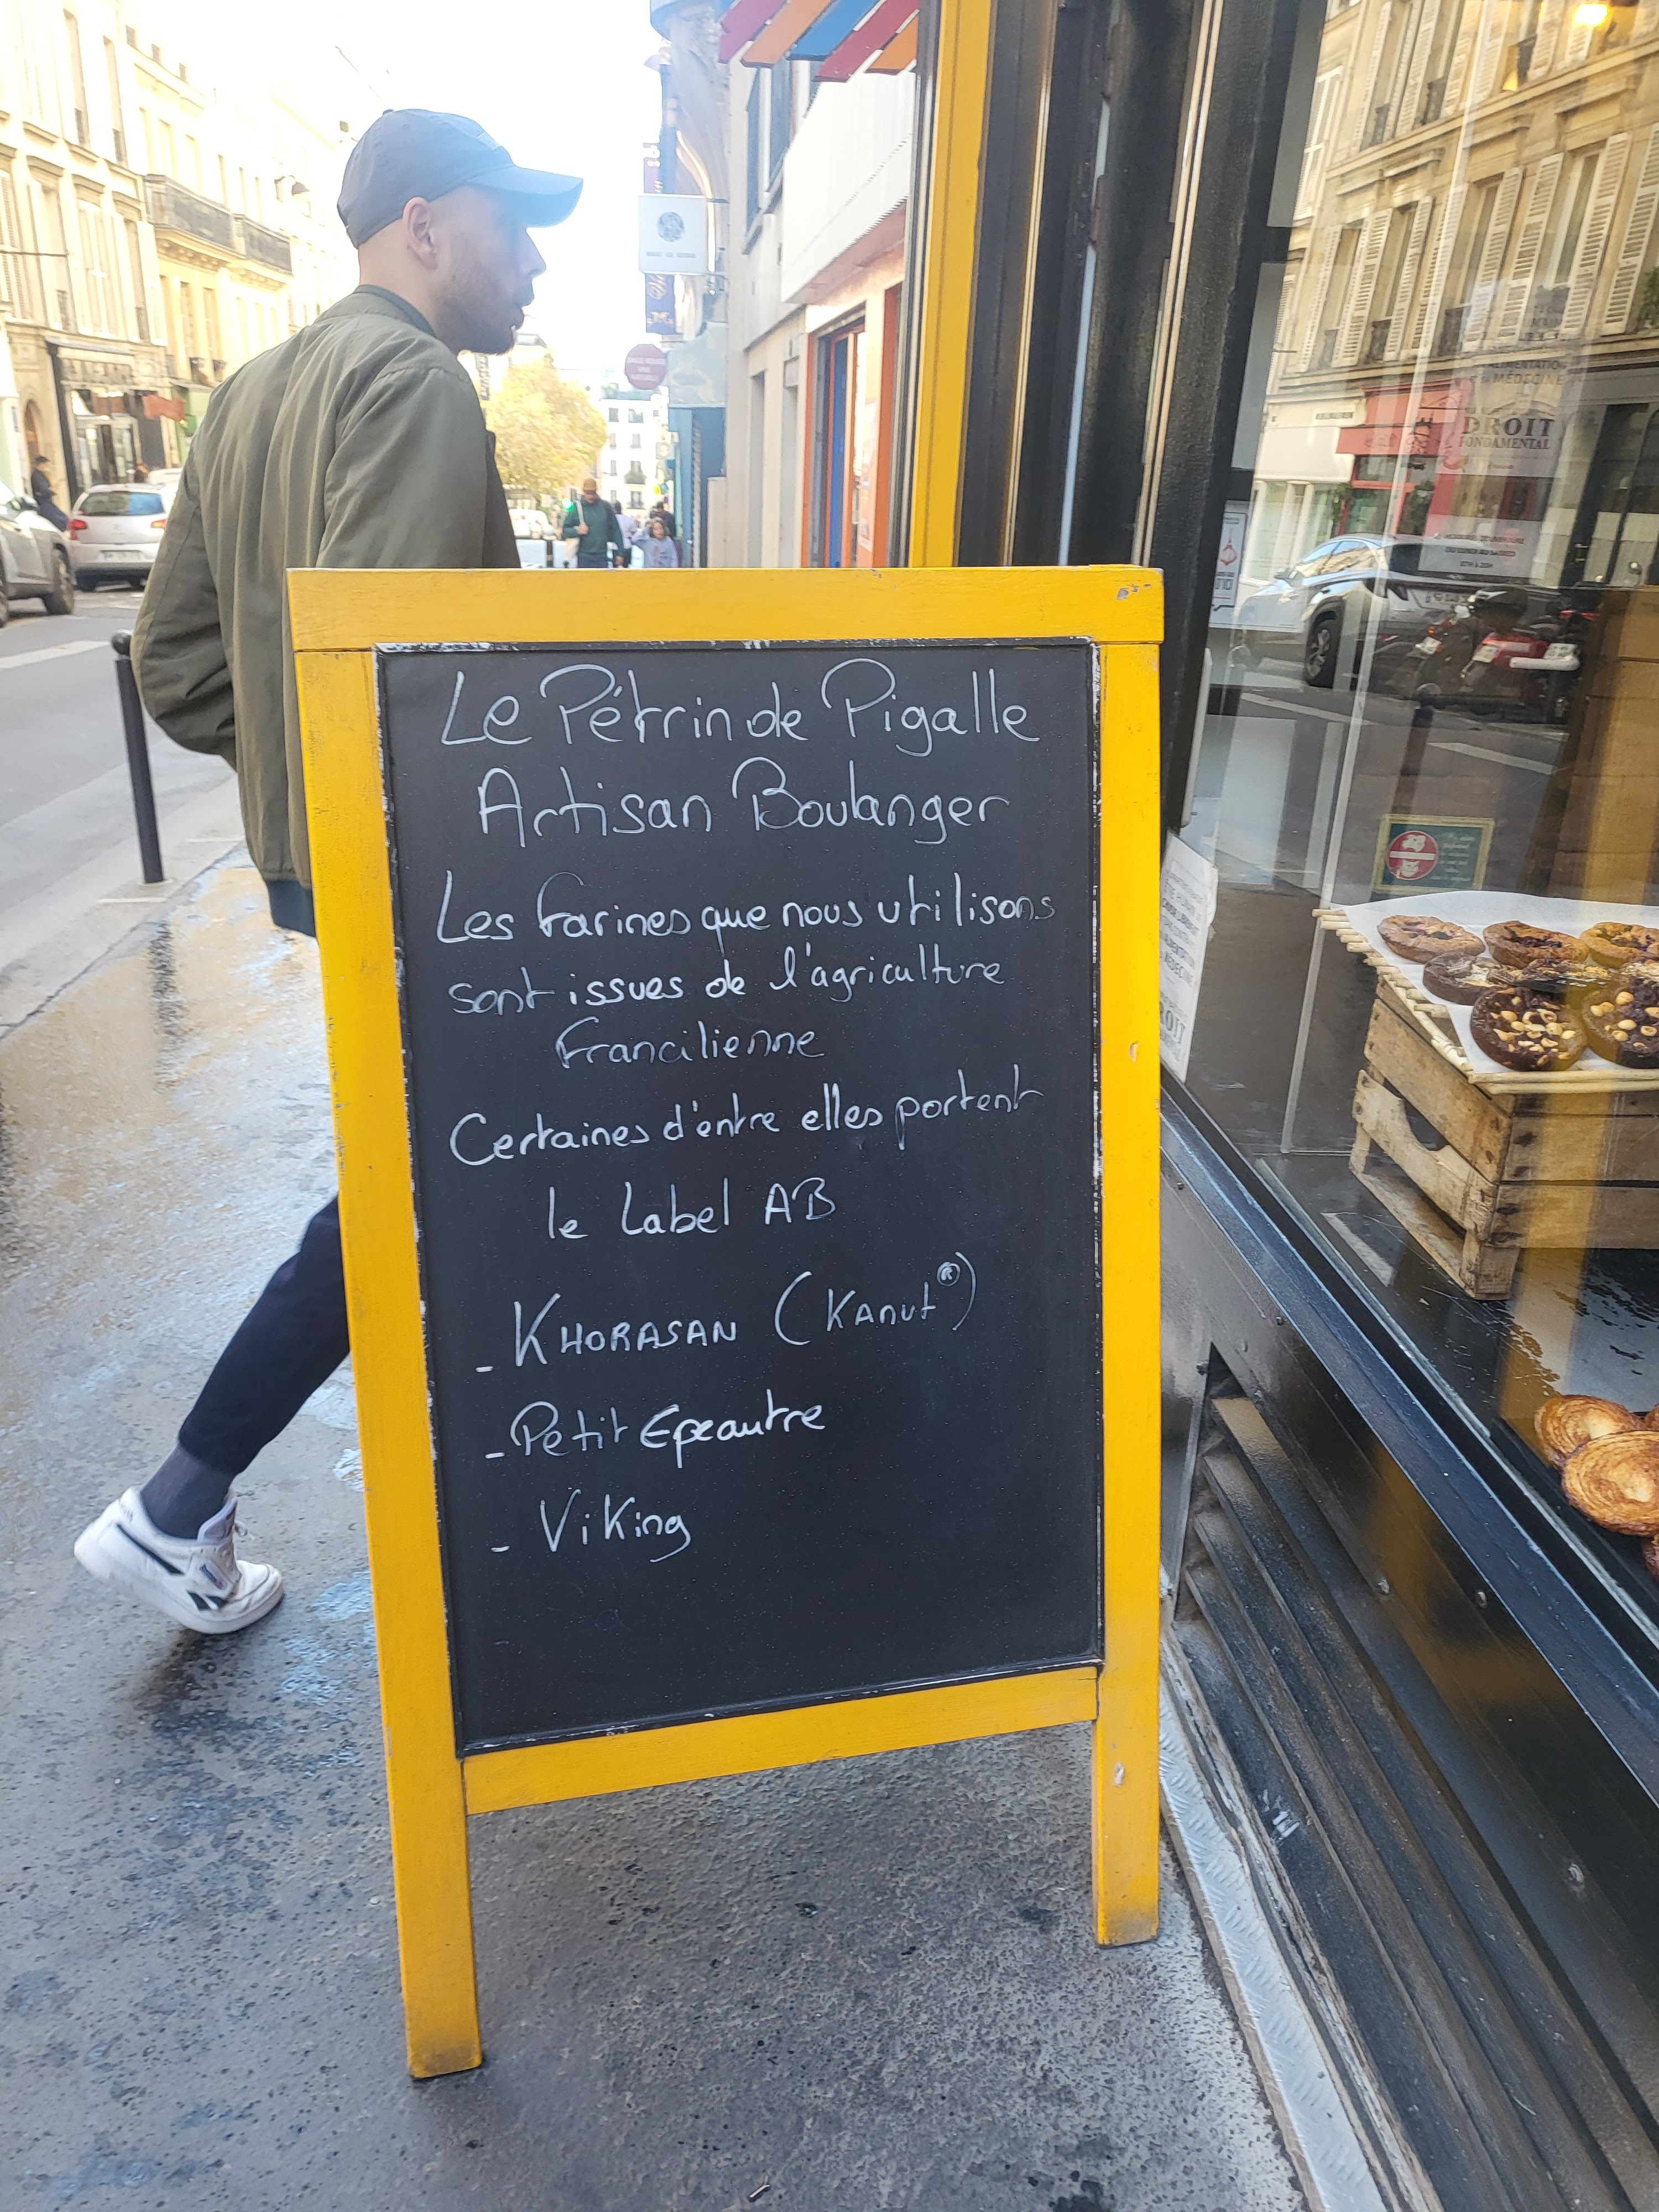 Le Pétrin de Pigalle
Artisan Boulanger
Les farines que nous utilisons
sont issues de l'agriculture
Francilienne
Certaines d'entre elles portent
le Label AB
- KHORASAN (KAmut®)
- Petit Epeautre
- ViKing
ALIMENTATION
MÉDECINE
DROIT
FONDAMENTAL